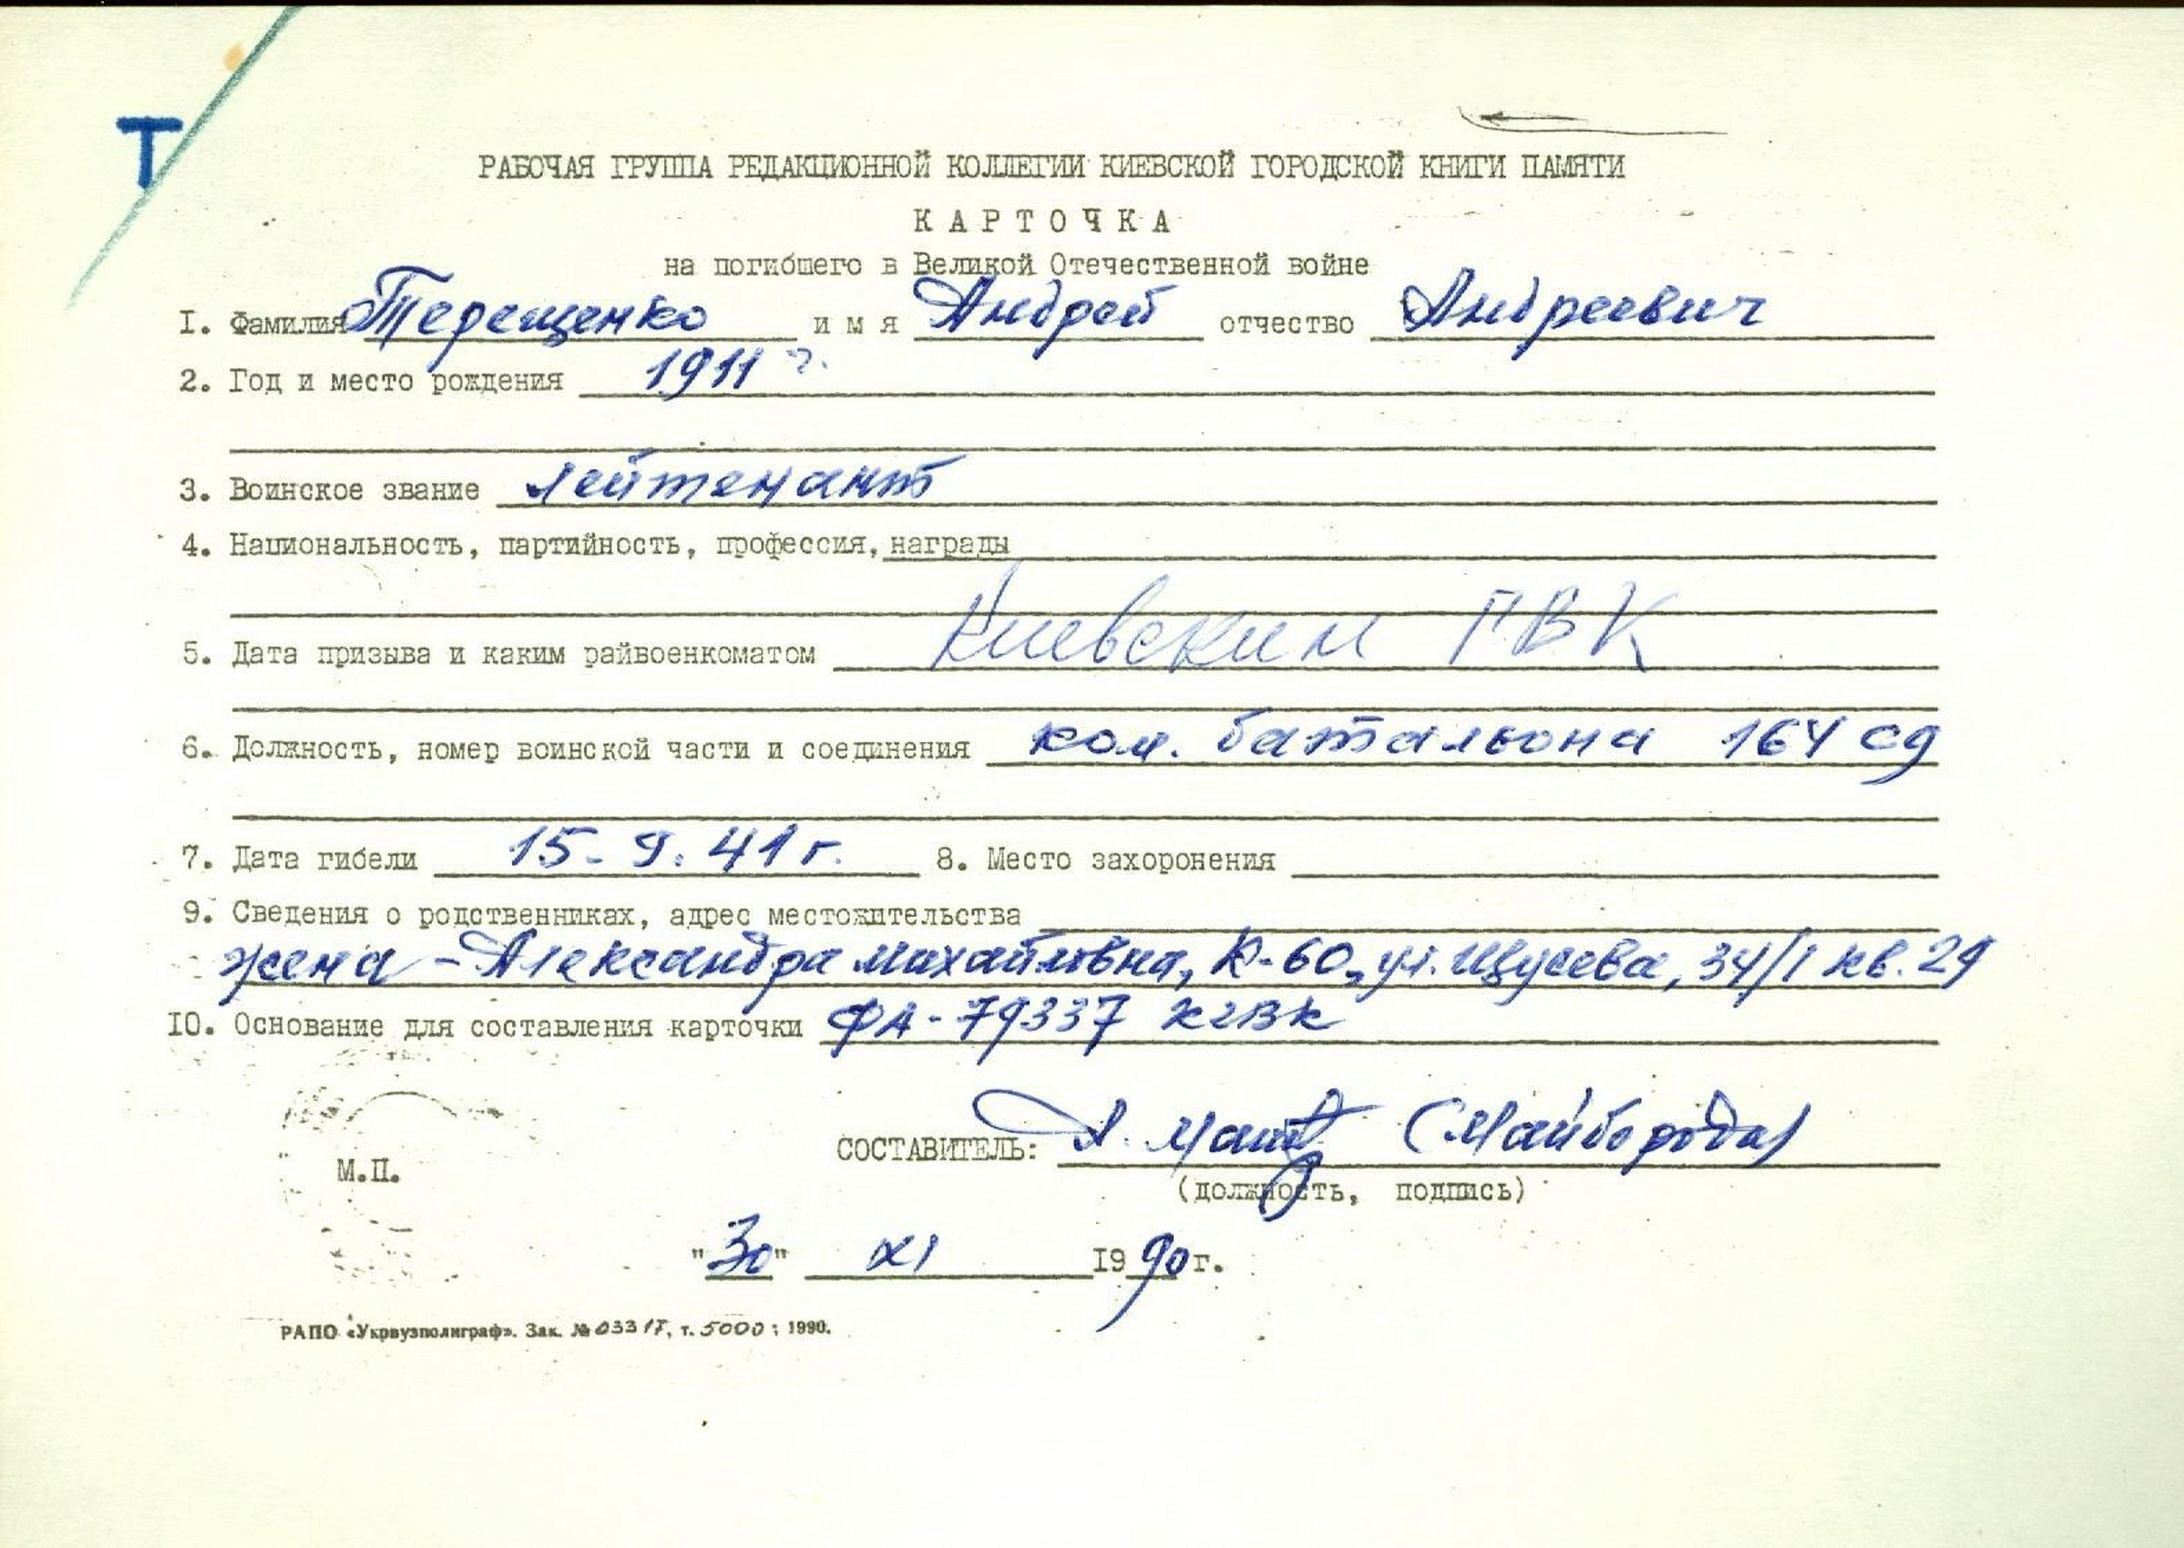 Т
РАБОЧАЯ ГРУППА РЕДАКЦИОННОЙ КОЛЛЕГИИ КИЕВСКОЙ ГОРОДСКОЙ КНИГИ ПАМЯТИ
КАРТОЧКА
на погибшего в Великой Отечественной войне
I. Фамилия Терещенко имя Андрей отчество Андреевич
2. Год и место рождения 1911 г.
3. Воинское звание лейтенант
4. Национальность, партийность, профессия, награды
5. Дата призыва и каким райвоенкоматом Киевским ГВК
6. Должность, номер воинской части и соединения ком. батальона 164 сд
7. Дата гибели 15-9.41г. 8. Место захоронения
9. Сведения о родственниках, адрес местожительства
жена - Александра Михайловна, К-60, ул. Щусева, 34/1 кв. 29
IO. Основание для составления карточки ФА-79337 КГВК
СОСТАВИТЕЛЬ: А. (Майборода)
М.П.
(должность, подпись)
"30" XI 1990г.
РАПО «Укрвузполиграф». Зак. № 03317, т. 5000; 1990.